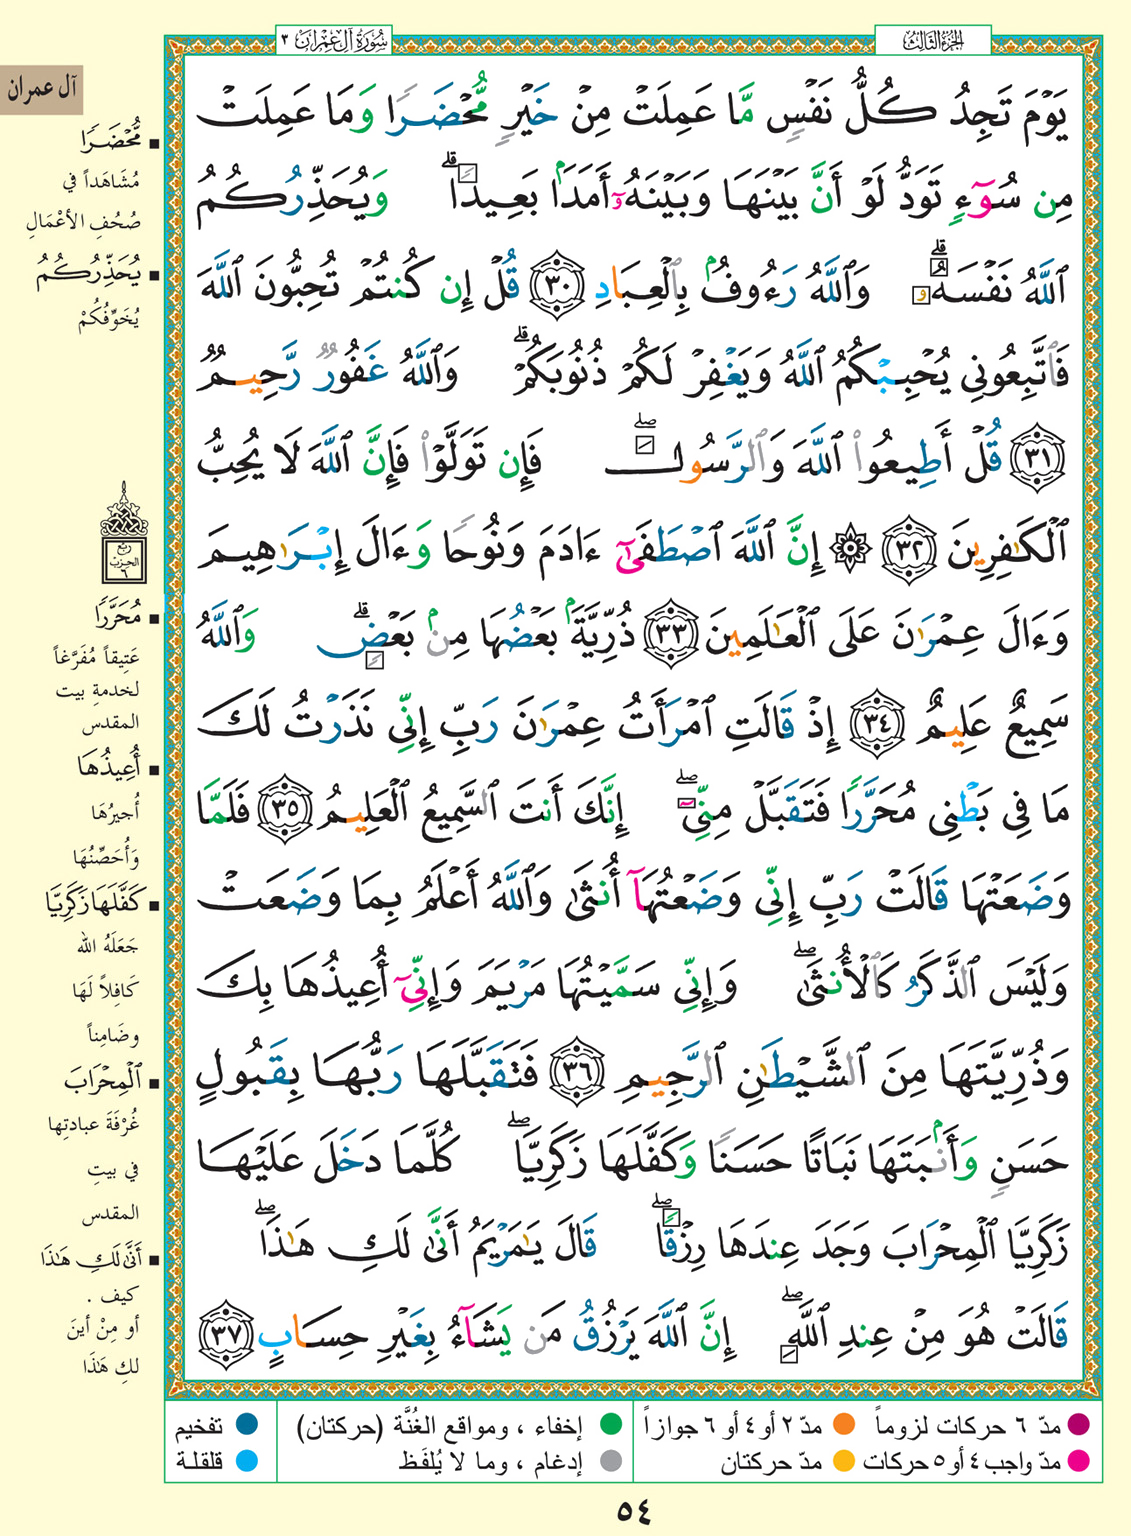 الجزء الثالث
سورة آل عمران ٣
يَوْمَ تَجِدُ كُلُّ نَفْسٍ مَّا عَمِلَتْ مِنْ خَيْرٍ مُّحْضَرًا وَمَا عَمِلَتْ
مِن سُوٓءٍ تَوَدُّ لَوْ أَنَّ بَيْنَهَا وَبَيْنَهُۥٓ أَمَدَۢا بَعِيدًا ۗ وَيُحَذِّرُكُمُ
ٱللَّهُ نَفْسَهُۥ ۗ وَٱللَّهُ رَءُوفُۢ بِٱلْعِبَادِ ٣٠ قُلْ إِن كُنتُمْ تُحِبُّونَ ٱللَّهَ
فَٱتَّبِعُونِى يُحْبِبْكُمُ ٱللَّهُ وَيَغْفِرْ لَكُمْ ذُنُوبَكُمْ ۗ وَٱللَّهُ غَفُورٌ رَّحِيمٌ
٣١ قُلْ أَطِيعُوا۟ ٱللَّهَ وَٱلرَّسُولَ ۖ فَإِن تَوَلَّوْا۟ فَإِنَّ ٱللَّهَ لَا يُحِبُّ
ٱلْكَٰفِرِينَ ٣٢ ۞ إِنَّ ٱللَّهَ ٱصْطَفَىٰٓ ءَادَمَ وَنُوحًا وَءَالَ إِبْرَٰهِيمَ
وَءَالَ عِمْرَٰنَ عَلَى ٱلْعَٰلَمِينَ ٣٣ ذُرِّيَّةَۢ بَعْضُهَا مِنۢ بَعْضٍ ۗ وَٱللَّهُ
سَمِيعٌ عَلِيمٌ ٣٤ إِذْ قَالَتِ ٱمْرَأَتُ عِمْرَٰنَ رَبِّ إِنِّى نَذَرْتُ لَكَ
مَا فِى بَطْنِى مُحَرَّرًا فَتَقَبَّلْ مِنِّىٓ ۖ إِنَّكَ أَنتَ ٱلسَّمِيعُ ٱلْعَلِيمُ ٣٥ فَلَمَّا
وَضَعَتْهَا قَالَتْ رَبِّ إِنِّى وَضَعْتُهَآ أُنثَىٰ وَٱللَّهُ أَعْلَمُ بِمَا وَضَعَتْ
وَلَيْسَ ٱلذَّكَرُ كَٱلْأُنثَىٰ ۖ وَإِنِّى سَمَّيْتُهَا مَرْيَمَ وَإِنِّىٓ أُعِيذُهَا بِكَ
وَذُرِّيَّتَهَا مِنَ ٱلشَّيْطَٰنِ ٱلرَّجِيمِ ٣٦ فَتَقَبَّلَهَا رَبُّهَا بِقَبُولٍ
حَسَنٍ وَأَنۢبَتَهَا نَبَاتًا حَسَنًا وَكَفَّلَهَا زَكَرِيَّا ۖ كُلَّمَا دَخَلَ عَلَيْهَا
زَكَرِيَّا ٱلْمِحْرَابَ وَجَدَ عِندَهَا رِزْقًا ۖ قَالَ يَٰمَرْيَمُ أَنَّىٰ لَكِ هَٰذَا ۖ
قَالَتْ هُوَ مِنْ عِندِ ٱللَّهِ ۖ إِنَّ ٱللَّهَ يَرْزُقُ مَن يَشَآءُ بِغَيْرِ حِسَابٍ ٣٧
آل عمران
مُّحْضَرًا
مُشَاهَداً في
صُحُفِ الأَعْمَالِ
يُحَذِّرُكُمُ
يُخَوِّفُكُمْ
ربع
الحزب
٦
مُحَرَّرًا
عَتِيقاً مُفَرَّغاً
لخدمةِ بيت
المقدس
أُعِيذُهَا
أُجيرُهَا
وَأُحَصِّنُهَا
كَفَّلَهَا زَكَرِيَّا
جَعَلَهُ الله
كَافِلاً لَهَا
وضَامِناً
ٱلْمِحْرَابَ
غُرْفَةَ عبادتِها
في بيتِ
المقدس
أَنَّىٰ لَكِ هَٰذَا
كيف .
أو مِنْ أينَ
لكِ هَٰذَا
مدّ ٦ حركات لزوماً
مدّ ٢ أو ٤ أو ٦ جوازاً
إخفاء ، ومواقع الغُنَّة (حركتان)
تفخيم
مدّ واجب ٤ أو ٥ حركات
مدّ حركتان
إدغام ، وما لا يُلفَظ
قلقلة
٥٤